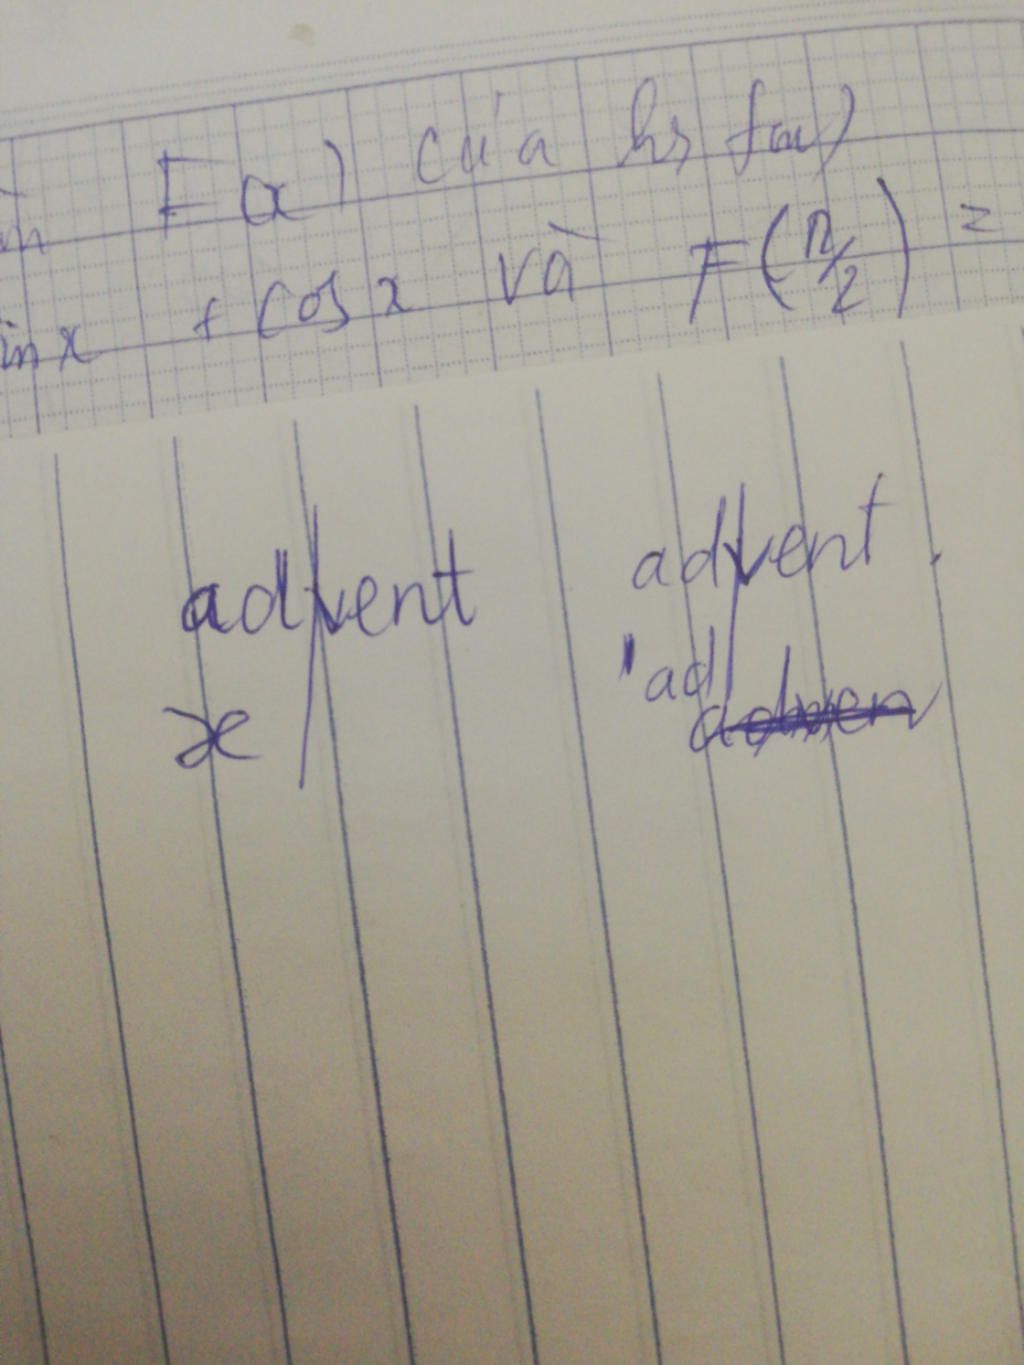 F(x) của hs f(x)
inx + cosx và F(π/2) =
advent advent.
æ 'ad